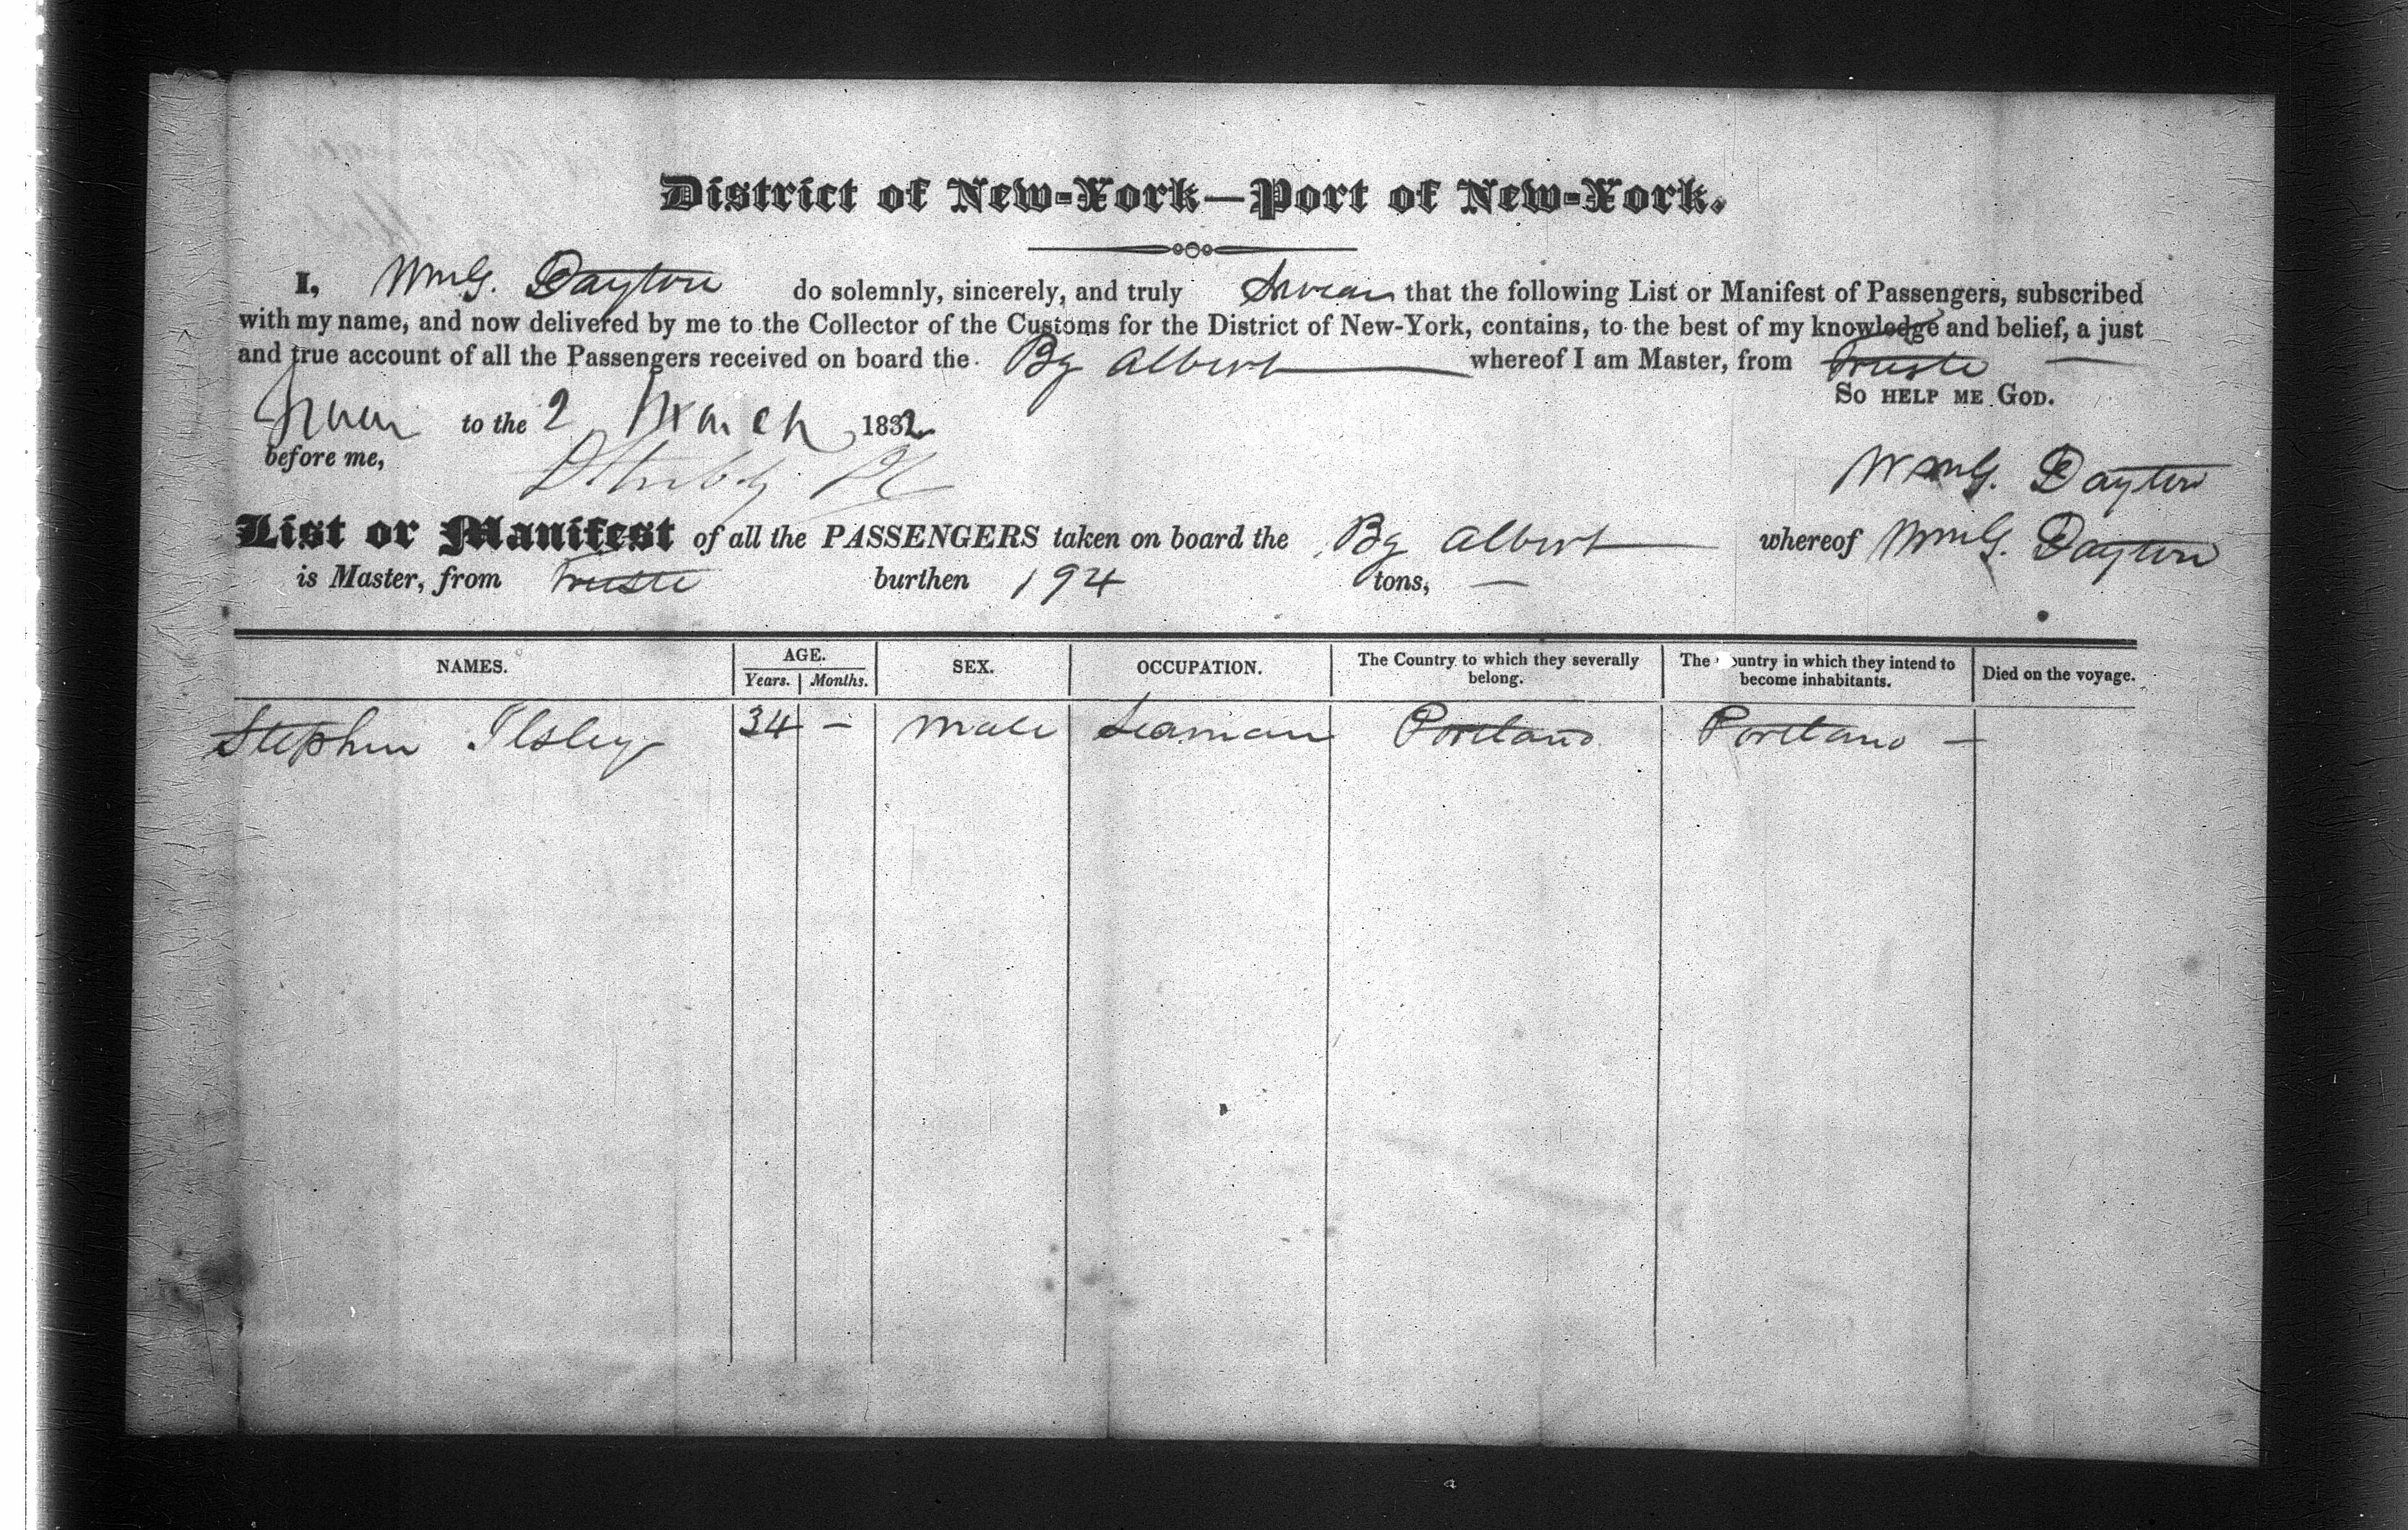 District of New-York—Port of New-York.
I, Wm G. Dayton do solemnly, sincerely, and truly Swear that the following List or Manifest of Passengers, subscribed
with my name, and now delivered by me to the Collector of the Customs for the District of New-York, contains, to the best of my knowledge and belief, a just
and true account of all the Passengers received on board the Bg Albert whereof I am Master, from Trieste
So help me God.
Sworn to the 2 March 1832
before me,
Wm G. Dayton
List or Manifest of all the PASSENGERS taken on board the Bg Albert whereof Wm G. Dayton
is Master, from Trieste burthen 194 tons, —
NAMES. AGE. Years. Months. SEX. OCCUPATION. The Country to which they severally belong. The Country in which they intend to become inhabitants. Died on the voyage.
Stephen Ilsley 34 — Male Seaman Portland Portland —